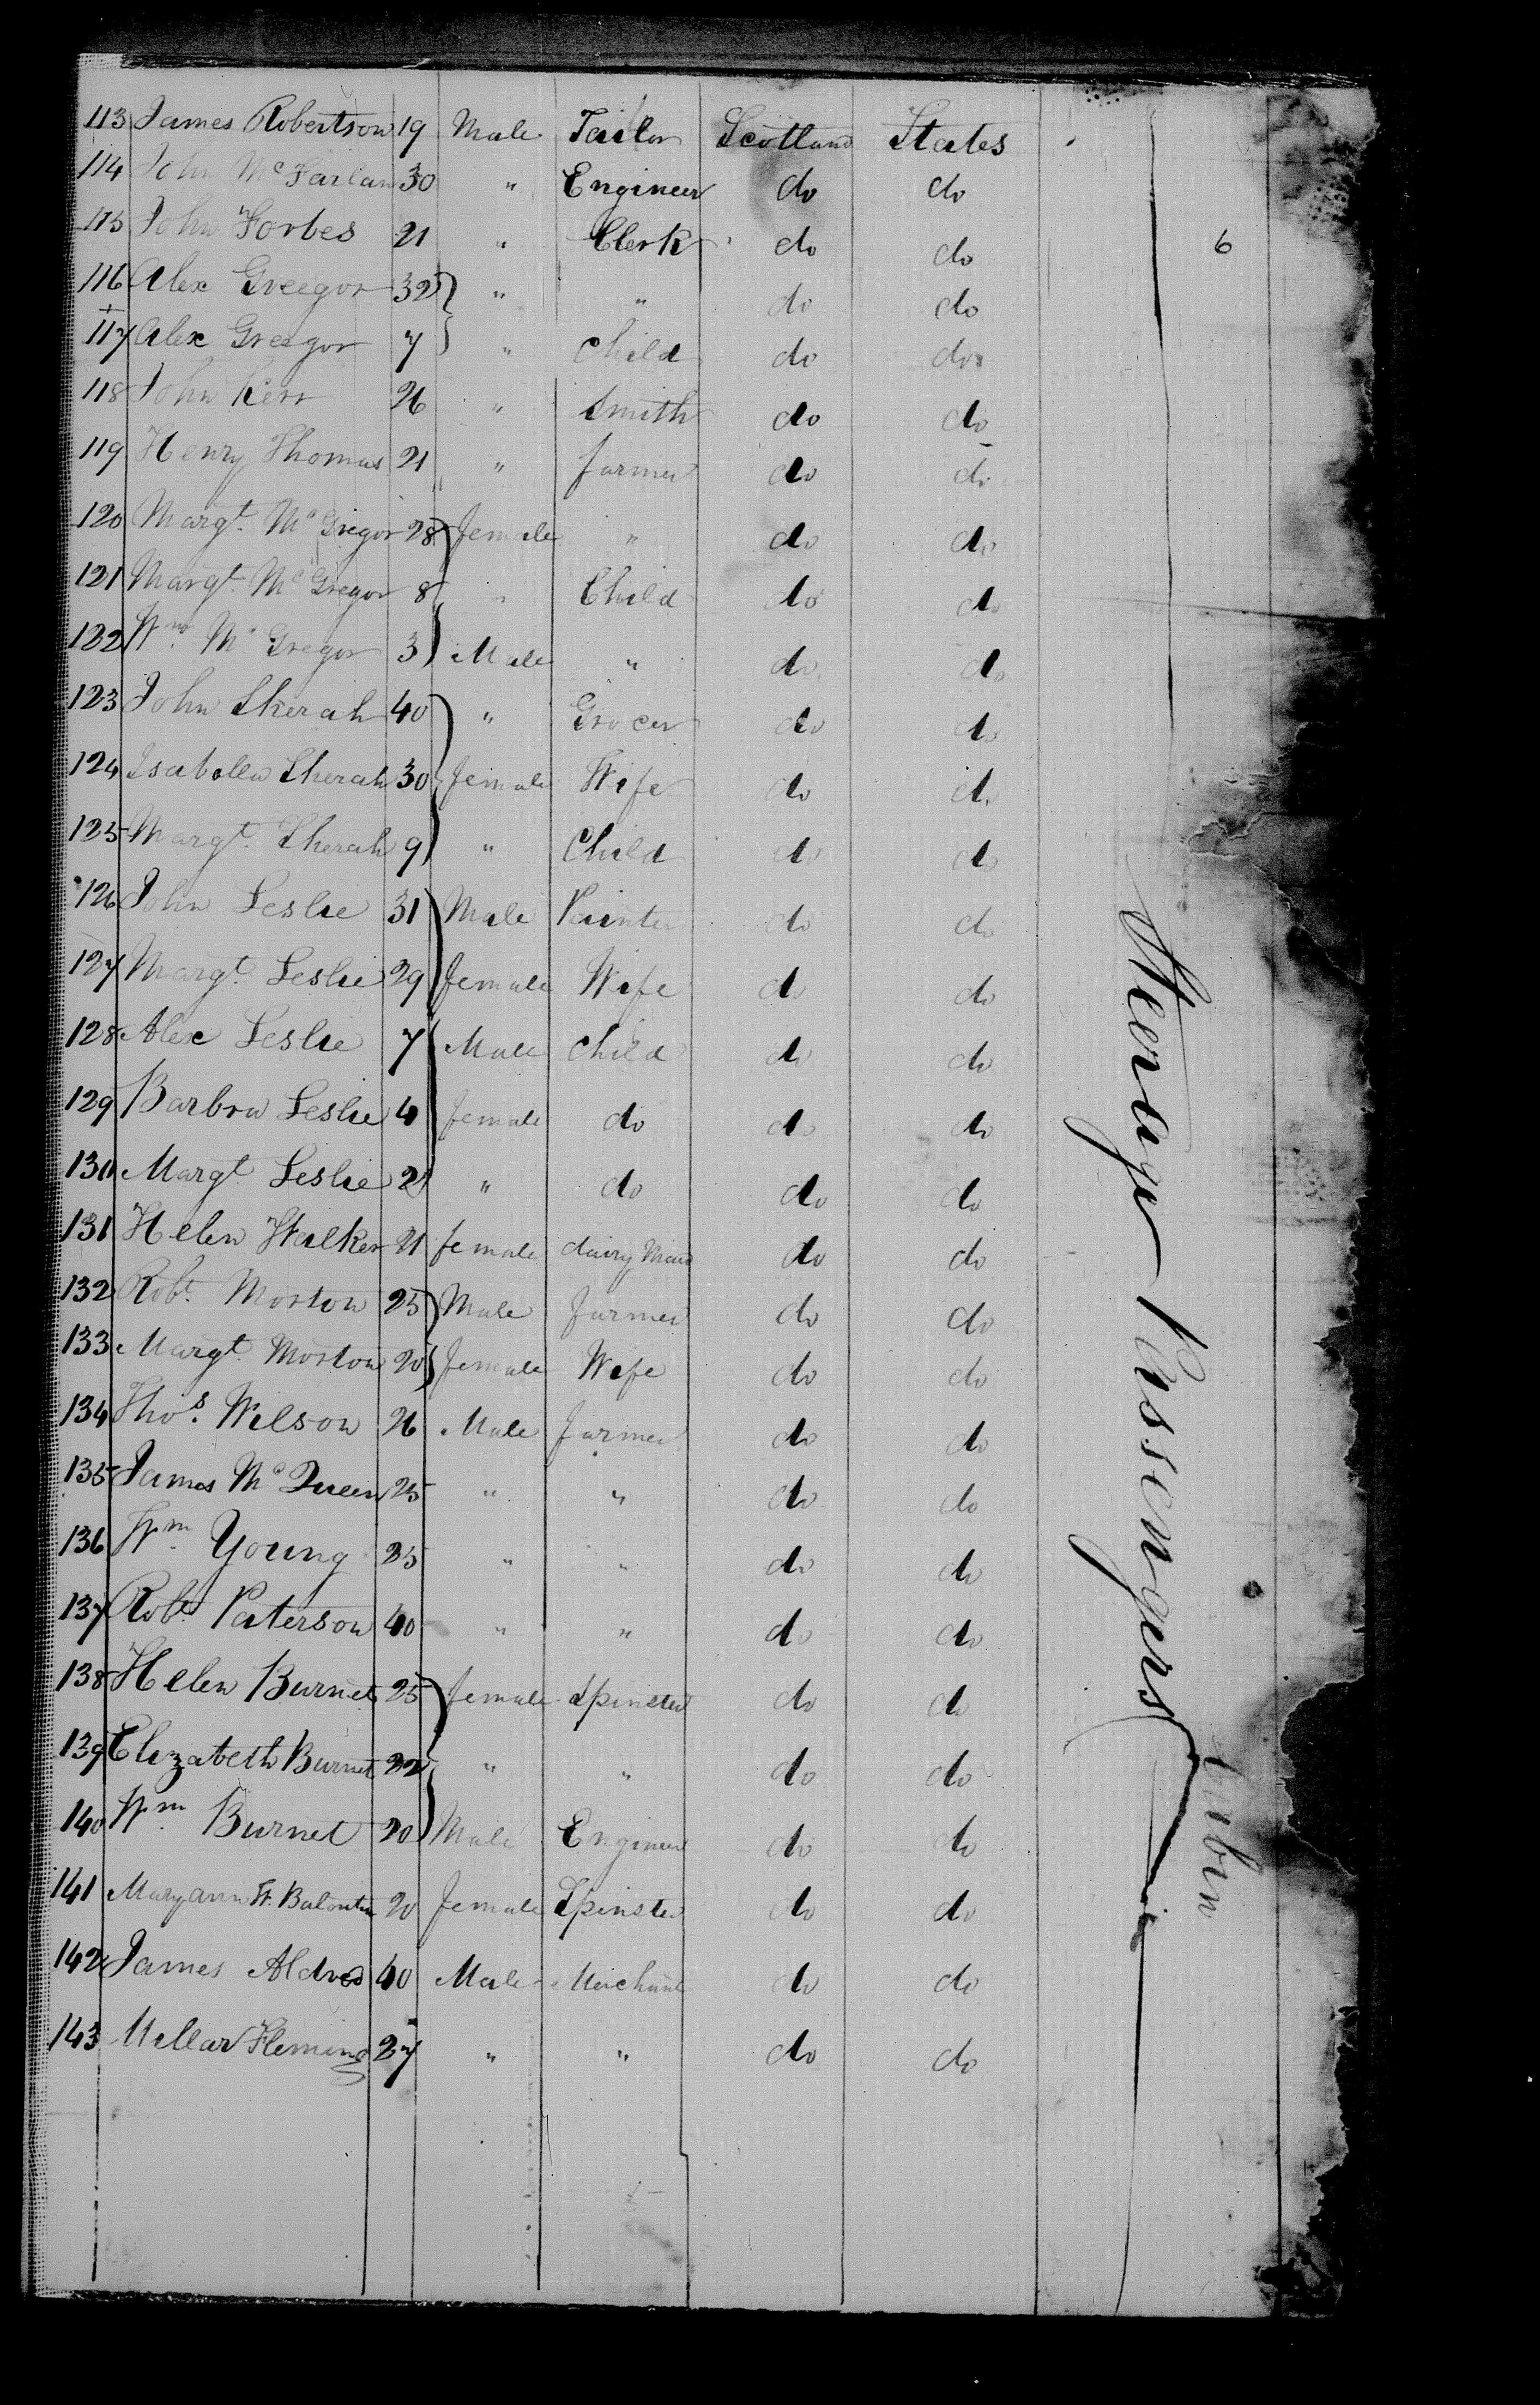 113 James Robertson 19 Male Tailor Scotland States
114 John McFarlan 30 " Engineer do do
115 John Forbes 21 " Clerk do do
6
116 Alex Greegor 32 " " do do
117 Alex Greegor 7 " Child do do
118 John Kerr 26 " Smith do do
119 Henry Thomas 21 " farmer do do
120 Margt. McGregor 28 female " do do
121 Margt. McGregor 8 " Child do do
122 Wm. McGregor 3 Male " do do
123 John Sherah 40 " Grocer do do
124 Isabella Sherah 30 female Wife do do
125 Margt. Sherah 9 " Child do do
126 John Leslie 31 Male Painter do do
127 Margt. Leslie 29 female Wife do do
128 Alex Leslie 7 Male Child do do
129 Barbra Leslie 4 female do do do
130 Margt Leslie 2 " do do do
131 Helen Walker 21 female dairy Maid do do
132 Robt. Morton 25 Male farmer do do
133 Margt. Morton 20 female Wife do do
134 Thos. Wilson 26 Male farmer do do
135 James McQueen 25 " " do do
136 Wm. Young 25 " " do do
137 Robt Paterson 40 " " do do
138 Helen Burnet 25 female Spinster do do
139 Elizabeth Burnet 22 " " do do
140 Wm. Burnet 20 Male Engineer do do
141 Maryann 20 female Spinster do do
142 James 40 Male Merchant do do
143 Millar Fleming 27 " " do do
Steerage Passengers
Cabin